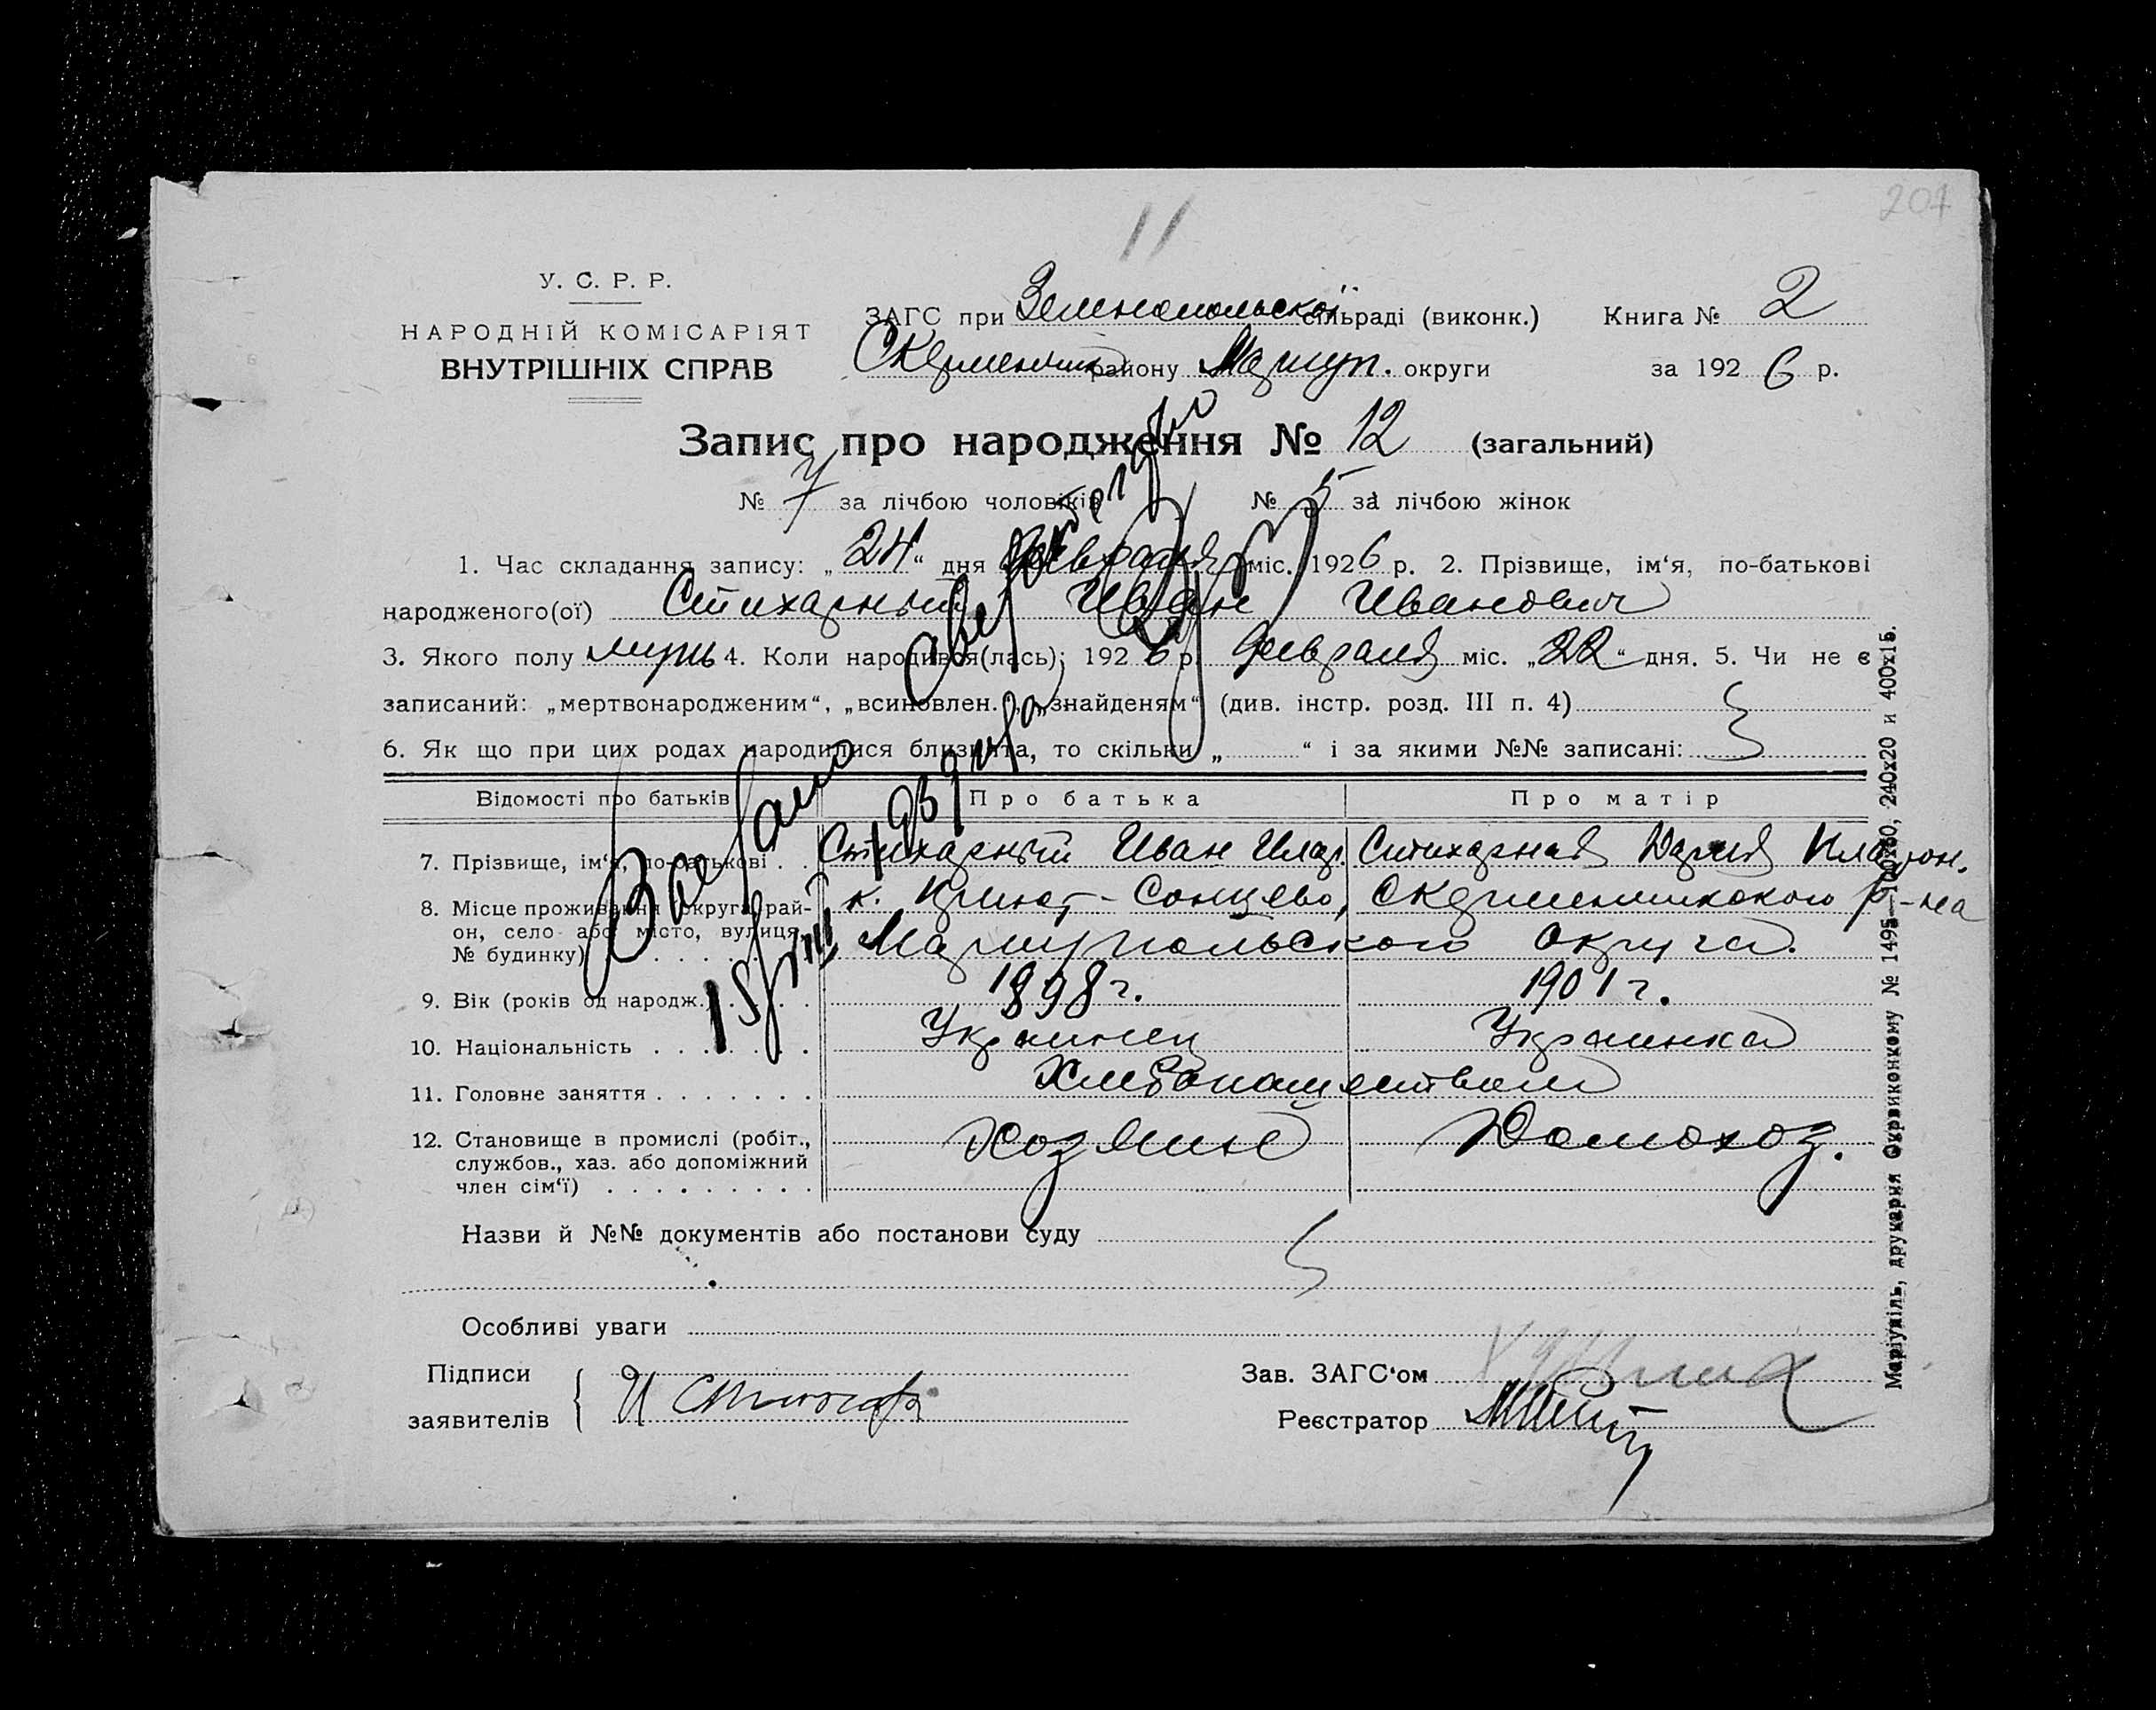 11
207
У. С. Р. Р.
НАРОДНІЙ КОМІСАРІЯТ
ВНУТРІШНІХ СПРАВ
ЗАГС при Зеленопольскої сільраді (виконк.) Книга № 2
району Мариуп. округи за 1926 р.
Запис про народження № 12 (загальний)
№ 7 за лічбою чоловіків № 5 за лічбою жінок
1. Час складання запису: „24“ дня февраля міс. 1926 р. 2. Прізвище, ім‘я, по-батькові
народженого(ої) Стихарный Иван Иванович
3. Якого полу муж 4. Коли народився(лась): 1926 р. февраля міс. „22“ дня. 5. Чи не є
записаний: „мертвонародженим“, „всиновлен.“, „знайденям“ (див. інстр. розд. III п. 4)
6. Як що при цих родах народилися близнята, то скільки „ “ і за якими №№ записані:
Відомості про батьків Про батька Про матір
7. Прізвище, ім‘я, по-батькові . . Стихарный Иван Стихарная Дария
8. Місце проживання (округа, рай-
он, село або місто, вулиця,
№ будинку)
Сонцево, р-на
Мариупольского Округа.
9. Вік (років од народж.) 1898 г. 1901 г.
10. Національність Украинец Украинка
11. Головне заняття Хлебопашеством
12. Становище в промислі (робіт.,
службов., хаз. або допоміжний
член сім‘ї)
Хозяин Домохоз.
Назви й №№ документів або постанови суду
Особливі уваги
Підписи
заявителів
Зав. ЗАГС‘ом
Реєстратор
Маріупіль, друкарня Окрвиконкому № 1495—100х60, 240х20 и 400х15.